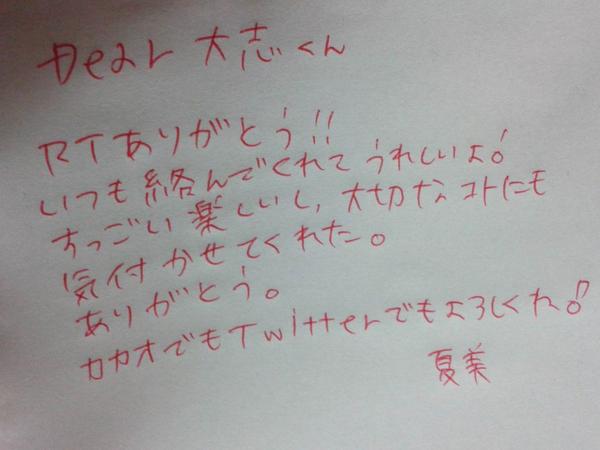 Dear 大志くん
RTありがとう!!
いつも絡んでくれてうれしいよ!
すっごい楽しいし、大切なコトにも
気付かせてくれた。
ありがとう。
カカオでもTwitterでもよろしくね!
夏美